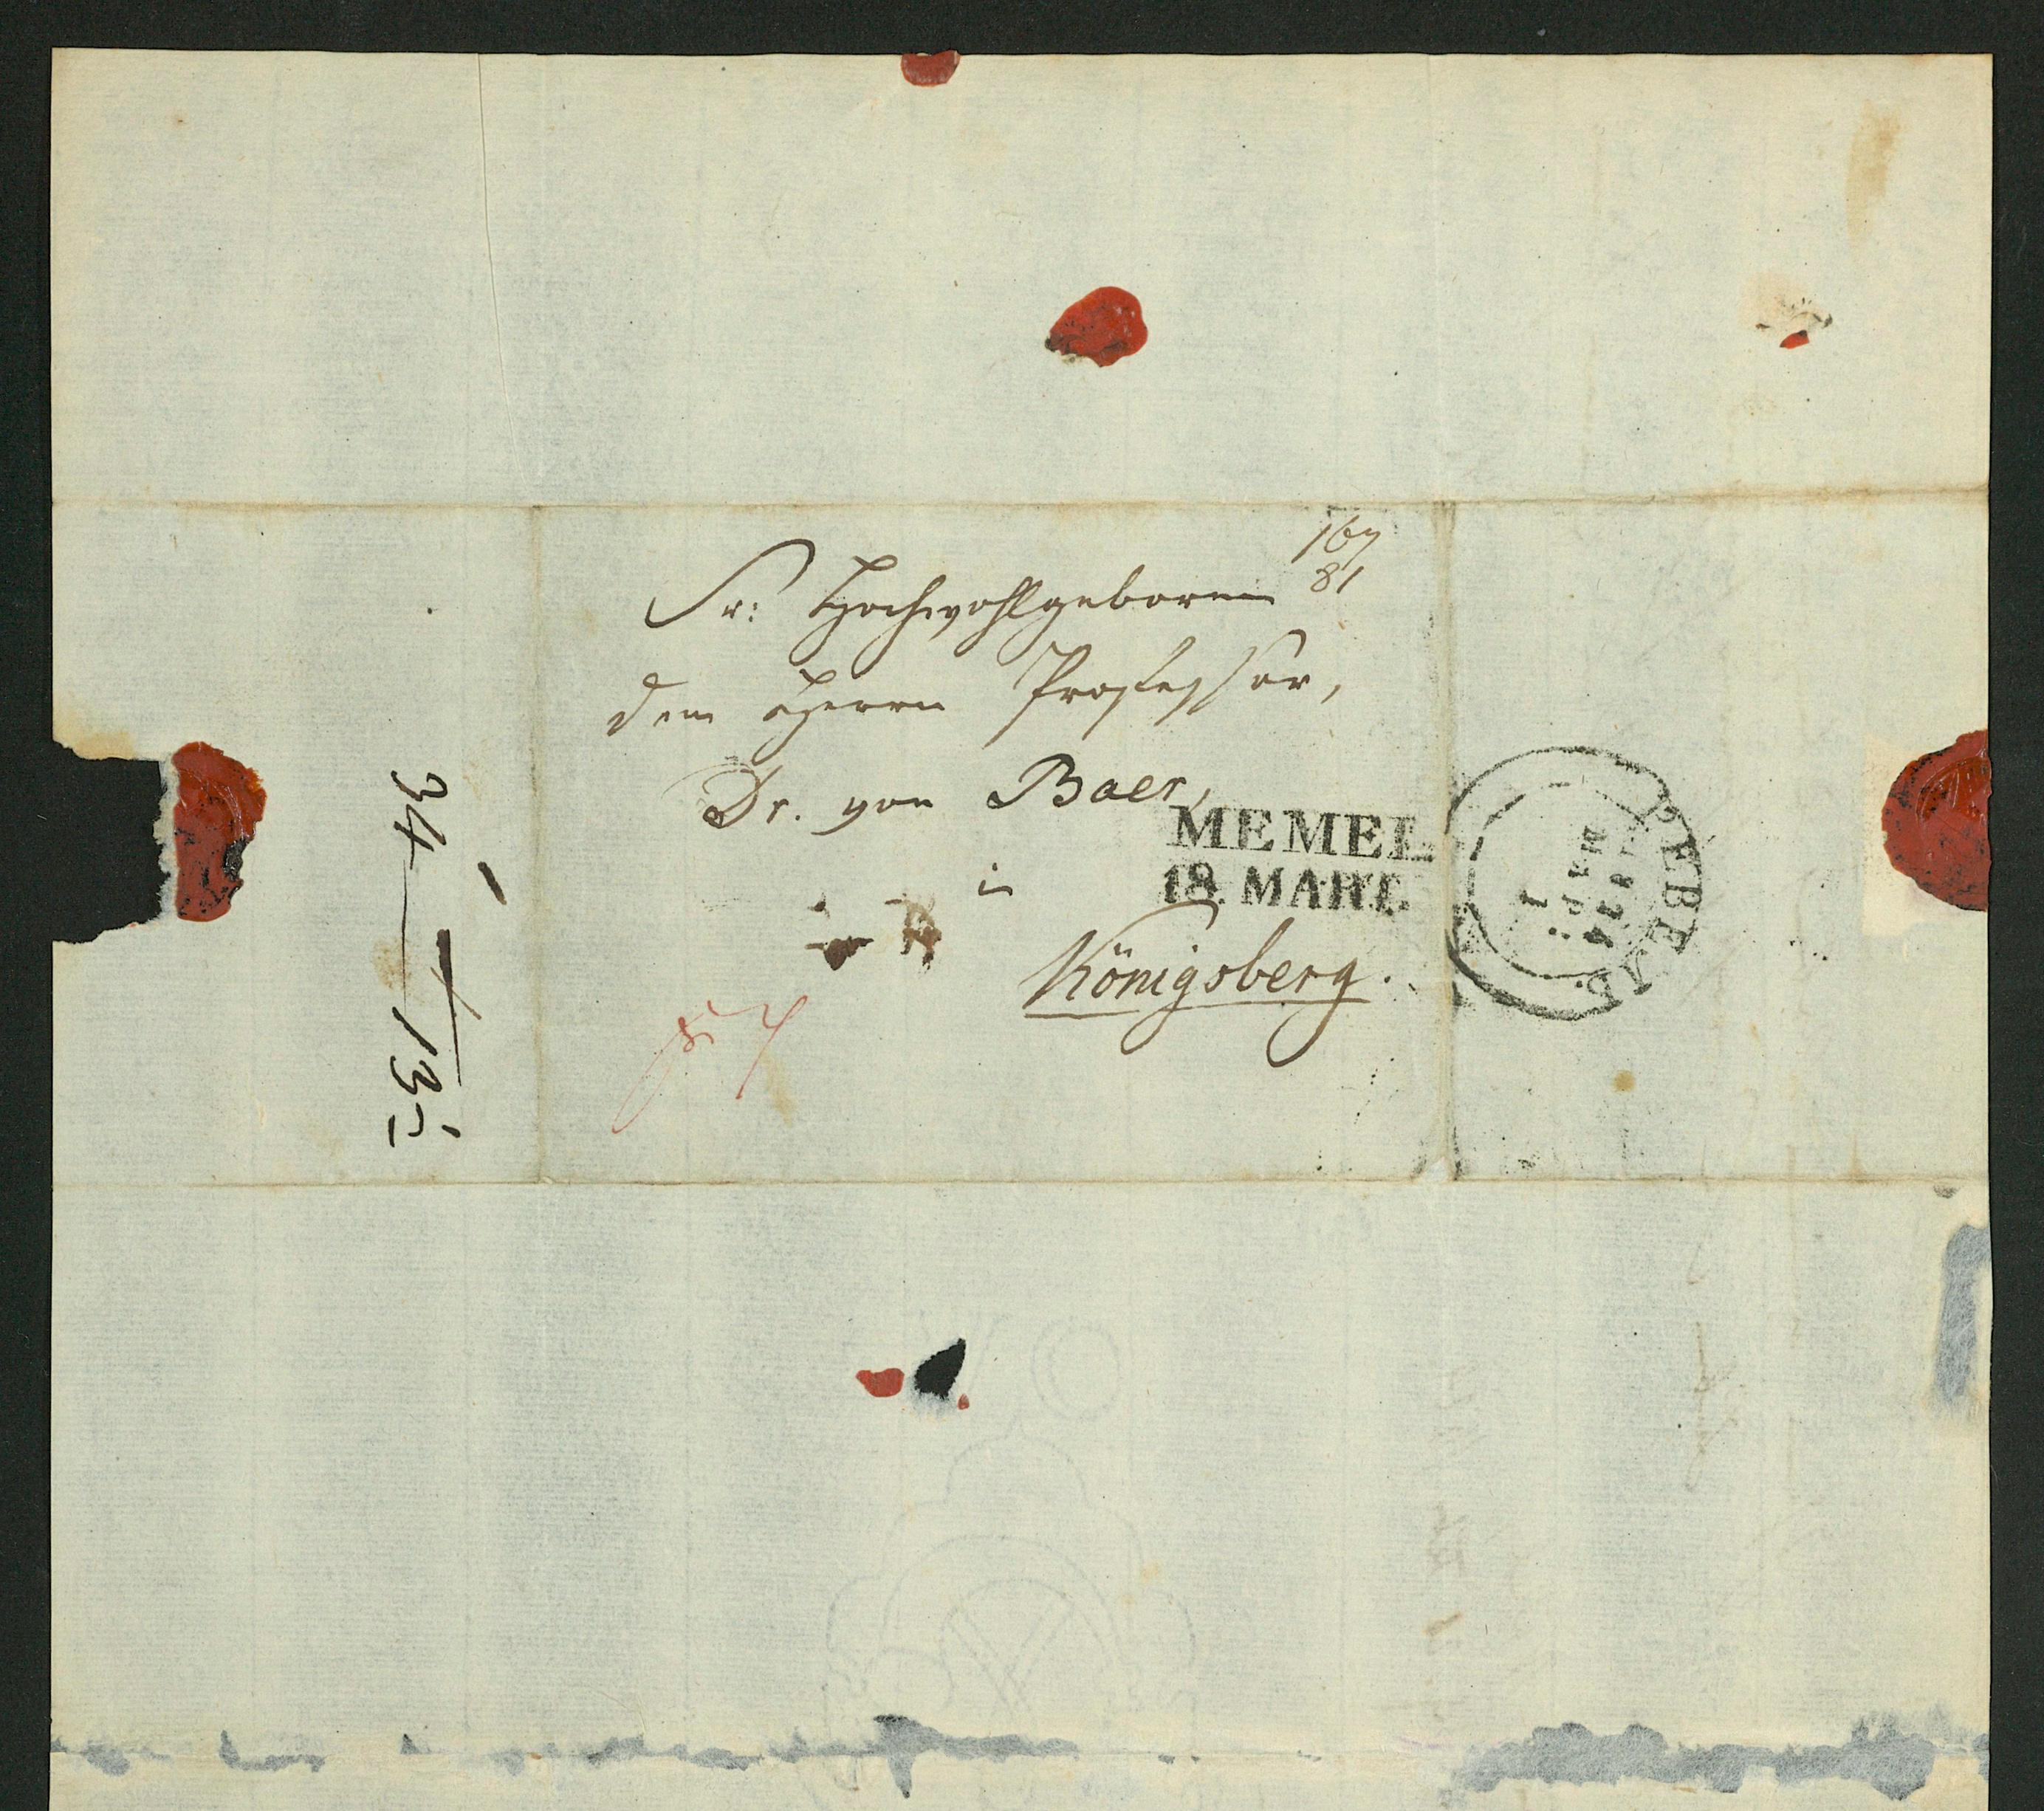 167
81
Sr: Hochwohlgeboren
dem Herrn Professor,
Dr. von Baer,
in
Königsberg.
MEMEL
18 MART.
1834